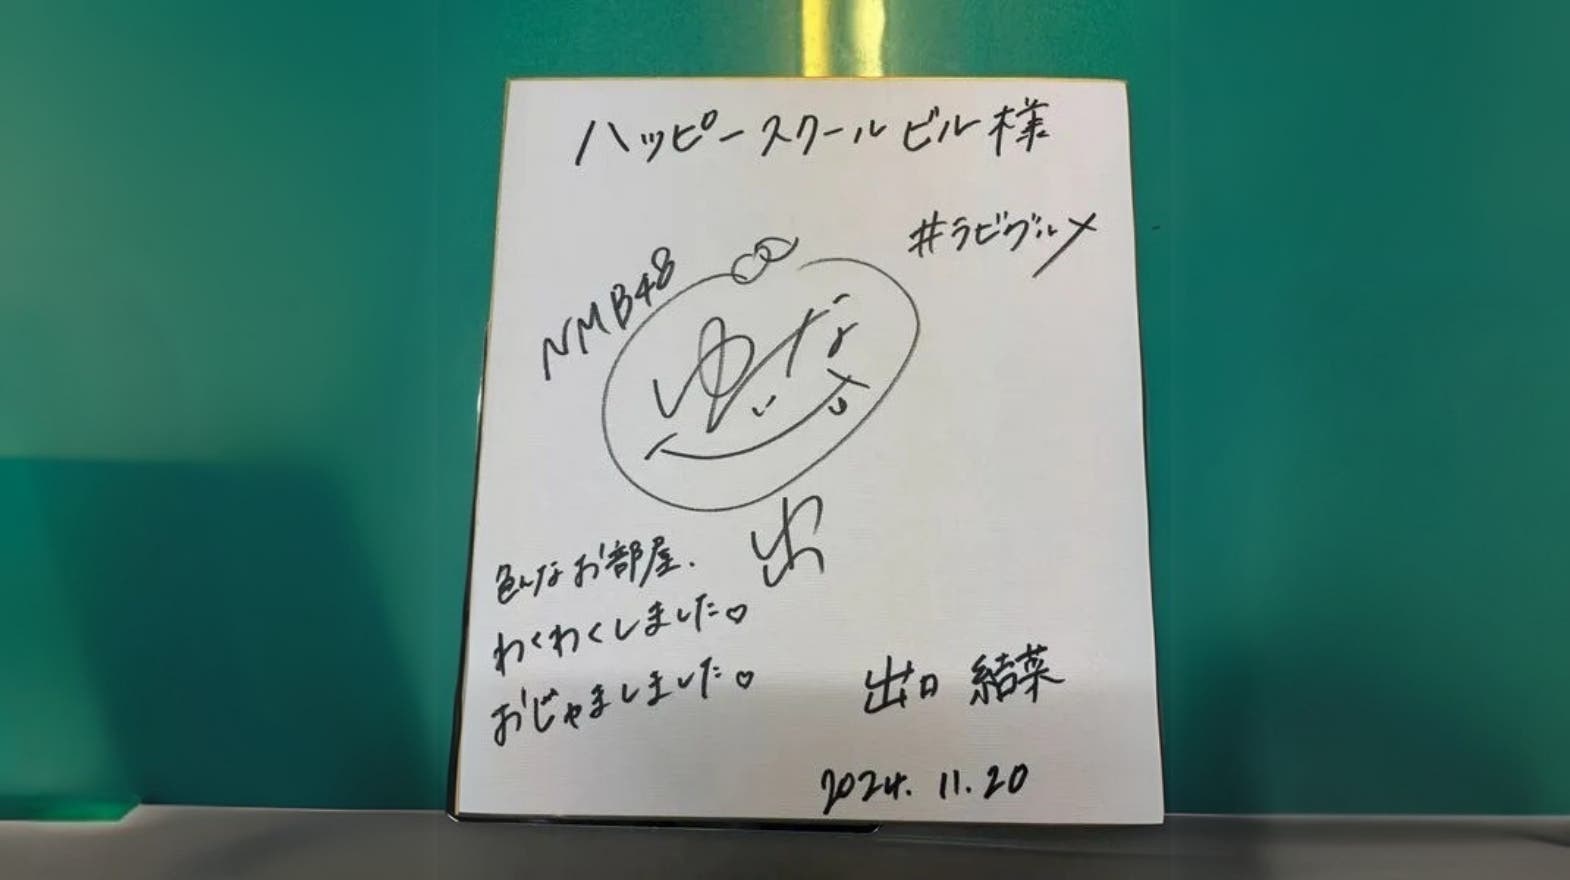 ハッピースクールビル様
#ラビグルメ
NMB48
ゆいな
出
色んなお部屋、
わくわくしました♡
おじゃましました♡
出口 結菜
2024.11.20